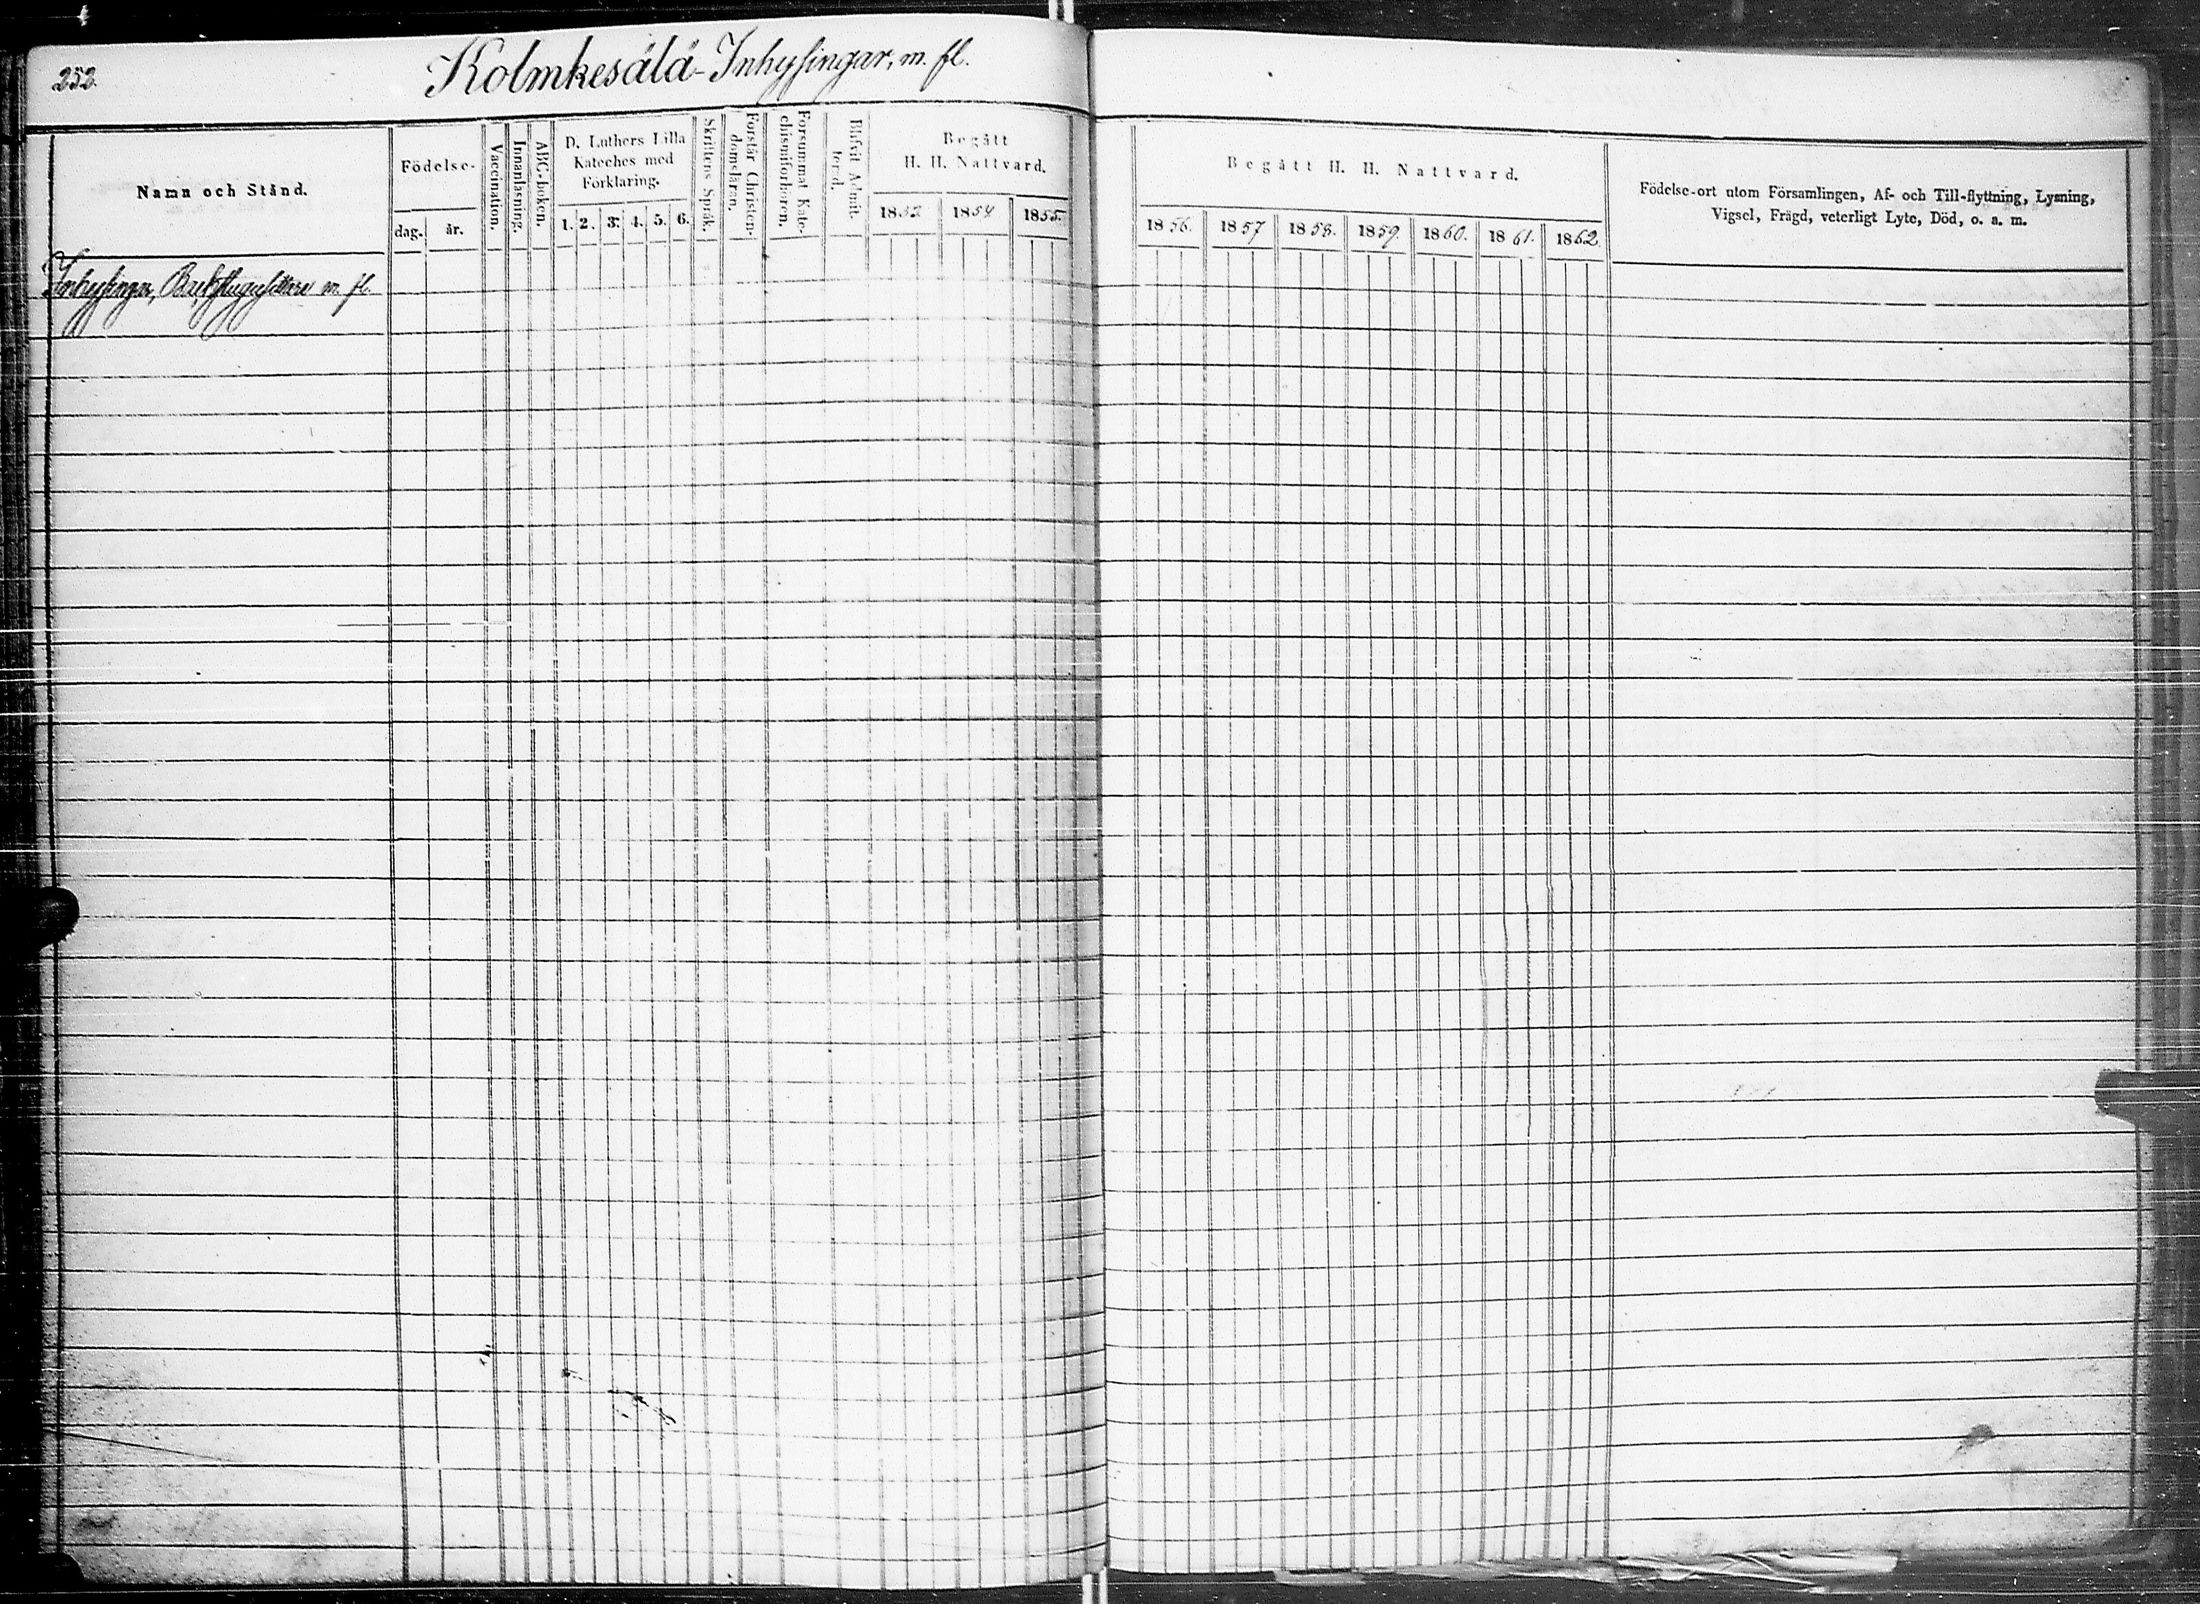 252.
Kolmkesälä-Inhysingar, m. fl.
Namn och Stånd.
Födelse-
dag. år.
Vaccination.
Innanläsning.
ABC-boken.
D. Luthers Lilla
Kateches med
Förklaring.
1. 2. 3. 4. 5. 6.
Skriftens Språk.
Förstår Christen-
domsläran.
Försummat Kate-
chismiförhören.
Blifvit Admit-
terad.
Begått
H. H. Nattvard.
1854 1855.
Begått H. H. Nattvard.
1856. 1857 1858. 1859. 1860. 1861. 1862.
Födelse-ort utom Församlingen, Af- och Till-flyttning, Lysning,
Vigsel, Frägd, veterligt Lyte, Död, o. a. m.
Inhysingar, Backstugusittare m. fl.